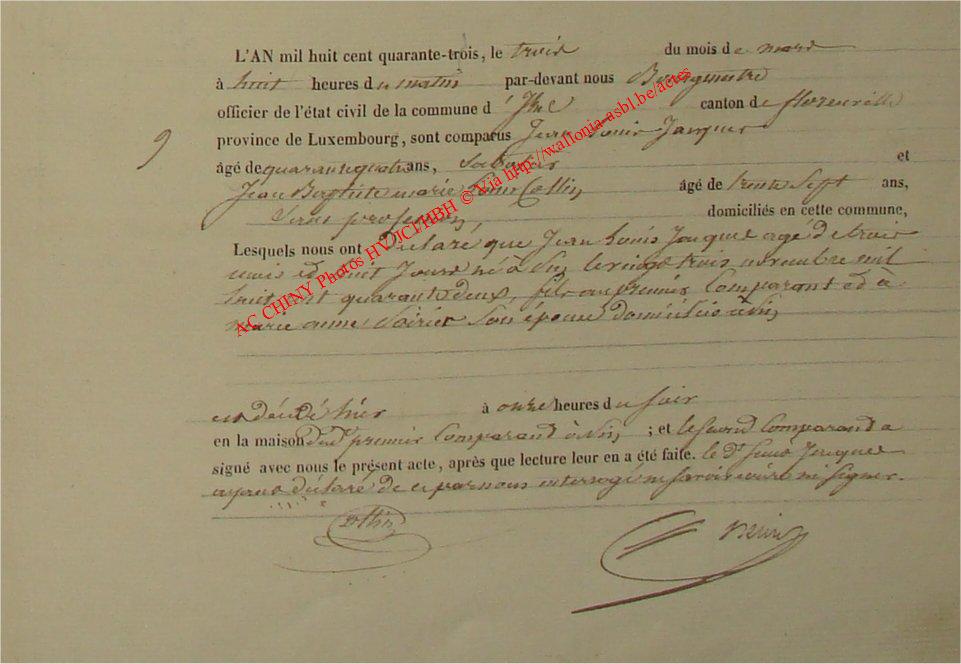 L'AN mil huit cent quarante-trois, le trois du mois de mars
à huit heures du matin par-devant nous Bourgmestre
officier de l'état civil de la commune d' canton de florenville
9
province de Luxembourg, sont comparus Jean Louis Jacques
âgé de quarante quatre ans, et
Jean Baptiste marie Collin âgé de trente Sept ans,
Sans profession, domiciliés en cette commune,
Lesquels nous ont déclaré que Jean Louis Jacques age de trois
mois et huit Jours né à le vingt trois novembre mil
huit cent quarante deux, fils au premier Comparant et à
marie anne Son épouse domiciliés à
est décédé hier à onze heures du soir
en la maison dud premier Comparand à ; et le second Comparand a
signé avec nous le présent acte, après que lecture leur en a été faite. le dt Louis Jacques
ayant déclaré de ce par nous interrogé ne savoir écrire ni signer.
Collin
AC CHINY Photos HV/JCH/HBH © Via http://wallonia-asbl.be/actes